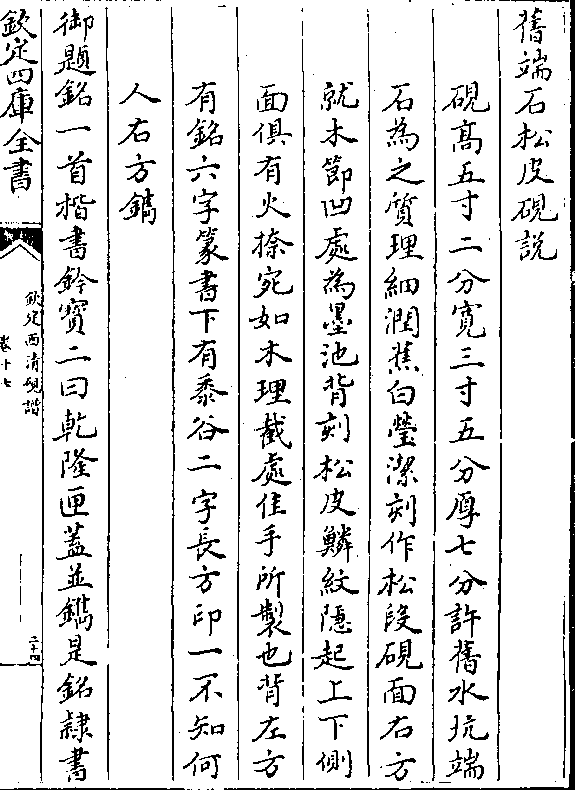 舊端石松皮硯說
硯高五寸二分寬三寸五分厚七分許舊水坑端
石為之質理細潤蕉白瑩潔刻作松段硯面右方
就木節凹處為墨池背刻松皮鱗紋隱起上下側
面俱有火捺宛如木理截處佳手所製也背左方
有銘六字篆書下有黍谷二字長方印一不知何
人右方鐫
御題銘一首楷書鈐寶二曰乾隆匣蓋並鐫是銘隸書
欽定四庫全書
欽定西清硯譜
卷十七
二十四